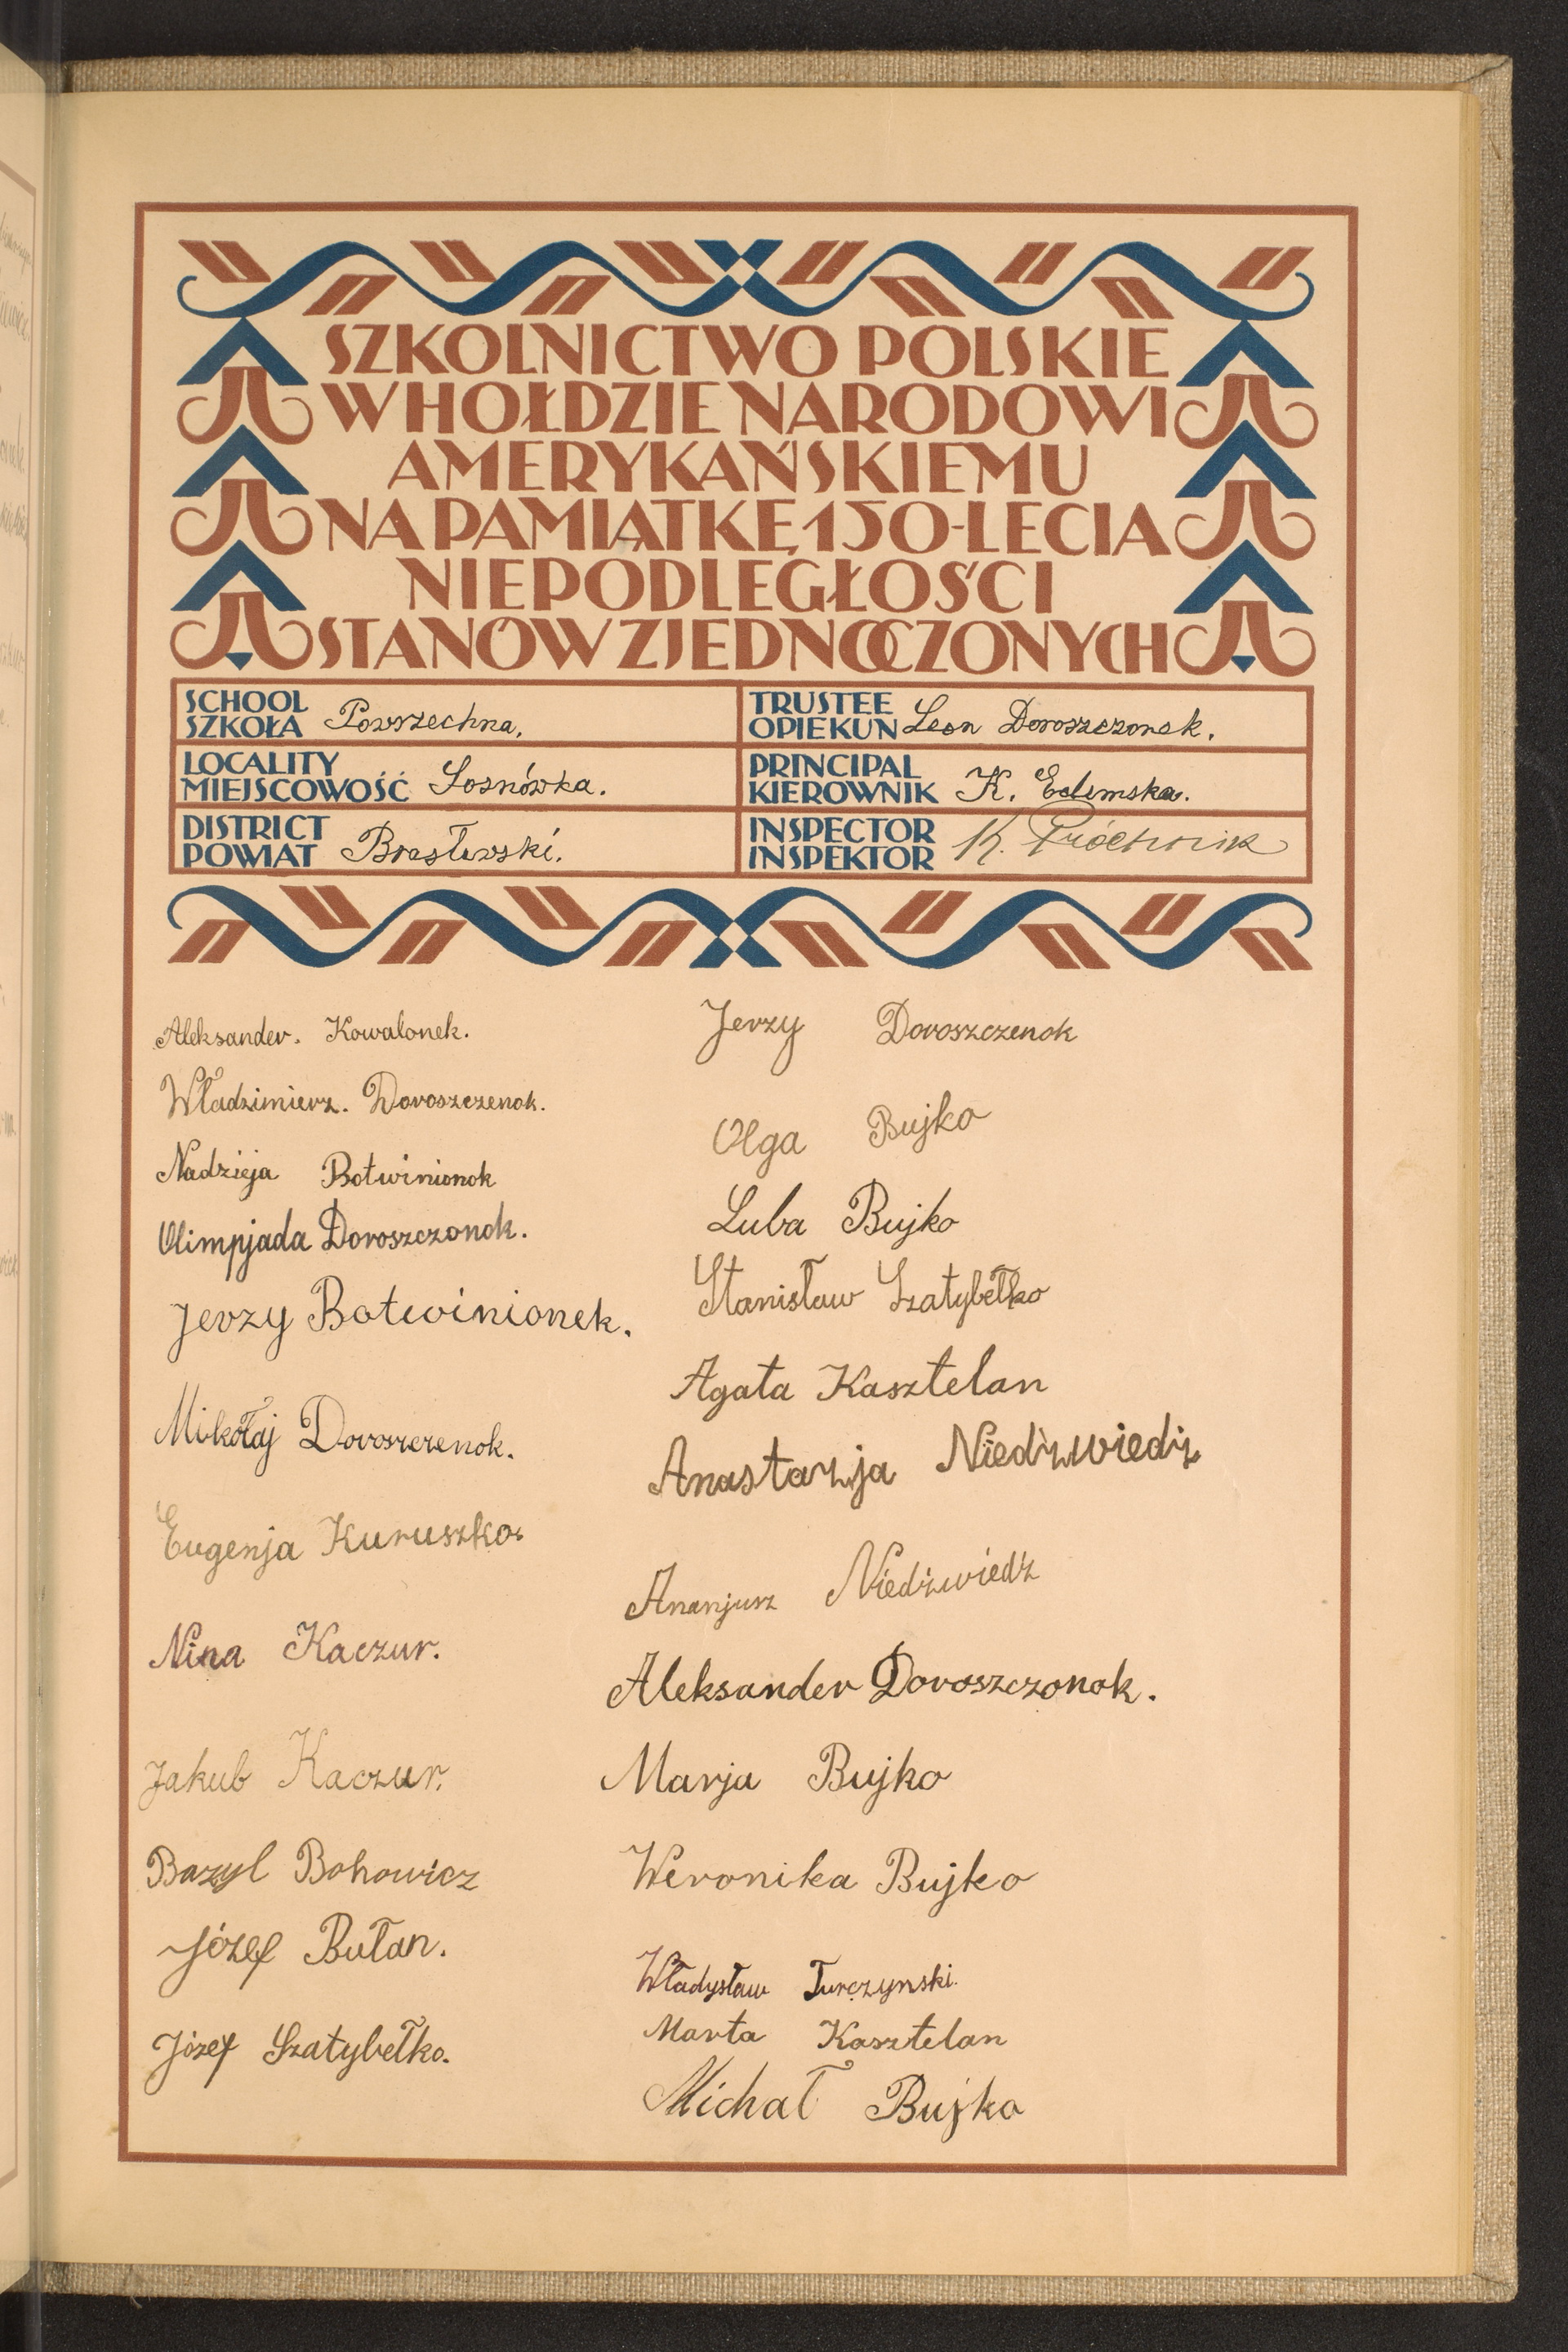 SZKOLNICTWO POLSKIE
W HOŁDZIE NARODOWI
AMERYKAŃSKIEMU
NA PAMIĄTKĘ 150-LECIA
NIEPODLEGŁOŚCI
STANÓW ZJEDNOCZONYCH
SCHOOL
SZKOŁA Powszechna.
TRUSTEE
OPIEKUN Leon Doroszczonek.
LOCALITY
MIEJSCOWOŚĆ Sosnówka.
PRINCIPAL
KIEROWNIK K.
DISTRICT
POWIAT Brasławski.
INSPECTOR
INSPEKTOR K. Próchnik
Aleksander. Kowalonek.
Władzimierz. Doroszczenok.
Nadzieja Botwinionok
Olimpjada Doroszczonok.
Jerzy Botwinionek.
Mikołaj Doroszczenok.
Eugenja Kuruszko.
Nina Kaczur.
Jakub Kaczur.
Bazyl Bohowicz
Józef Bułan.
Józef Szatybełko.
Jerzy Doroszczenok
Olga Bujko
Luba Bujko
Stanisław Szatybełko
Agata Kasztelan
Anastazja Niedźwiedź
Ananjusz Niedźwiedź
Aleksander Doroszczonok.
Marja Bujko
Weronika Bujko
Władysław Turczynski.
Marta Kasztelan
Michał Bujko